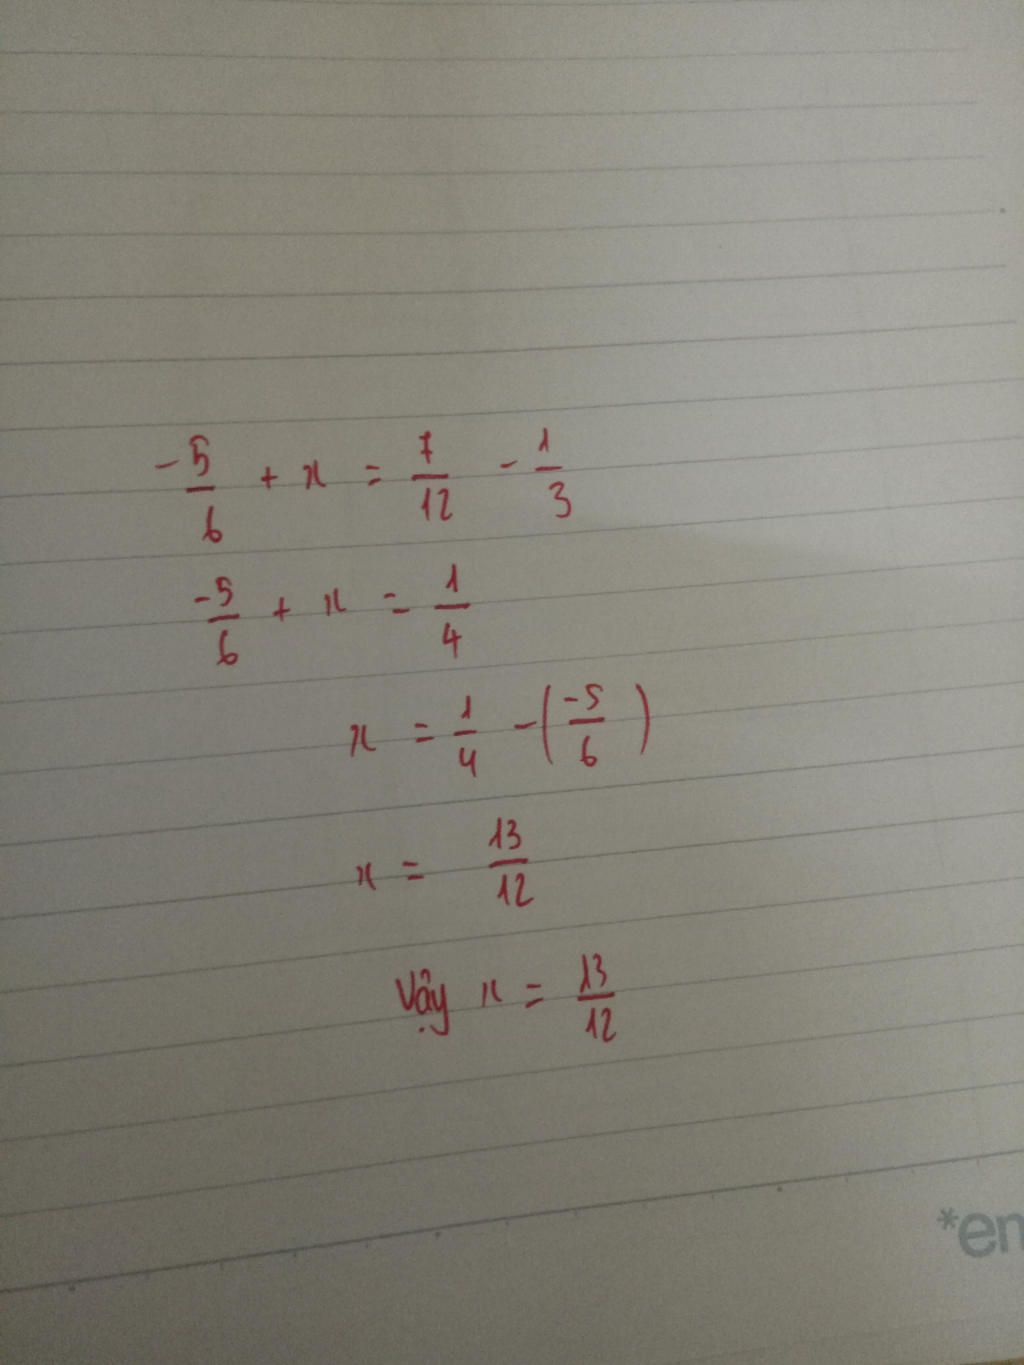 -5/6 + x = 7/12 - 1/3
-5/6 + x = 1/4
x = 1/4 - (-5/6)
x = 13/12
Vậy x = 13/12
*en